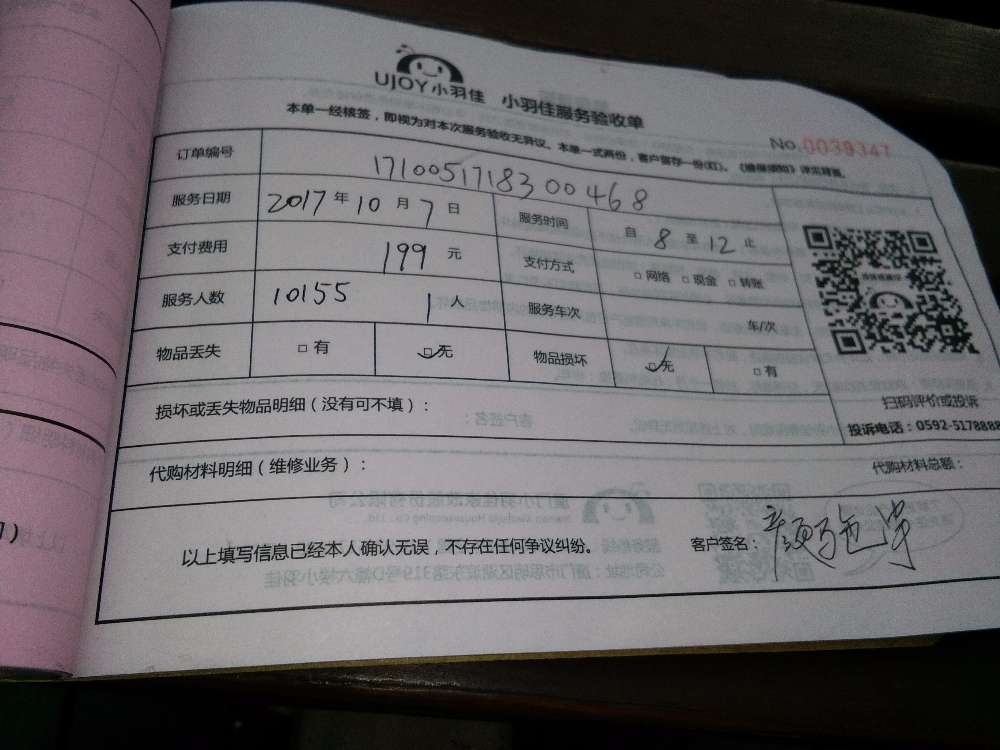 UJOY小羽佳 小羽佳服务验收单
本单一经核签，即视为对本次服务验收无异议。本单一式两份，客户留存一份(红)。《维保须知》详见背面。
No.0039347
订单编号 1710051718300468
服务日期 2017年10月7日 服务时间 自8至12止
支付费用 199元 支付方式 □网络 □现金 □转账
服务人数 10155 1人 服务车次 车/次
物品丢失 □有 □无 物品损坏 □无 □有
扫码评价或投诉
投诉电话：0592-5178888
损坏或丢失物品明细（没有可不填）：
代购材料明细（维修业务）： 代购材料总额：
以上填写信息已经本人确认无误，不存在任何争议纠纷。 客户签名：